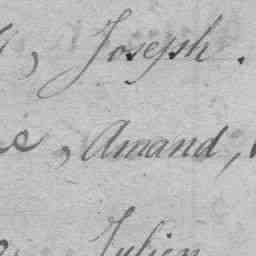 , Joseph.
, Amand,
Julien